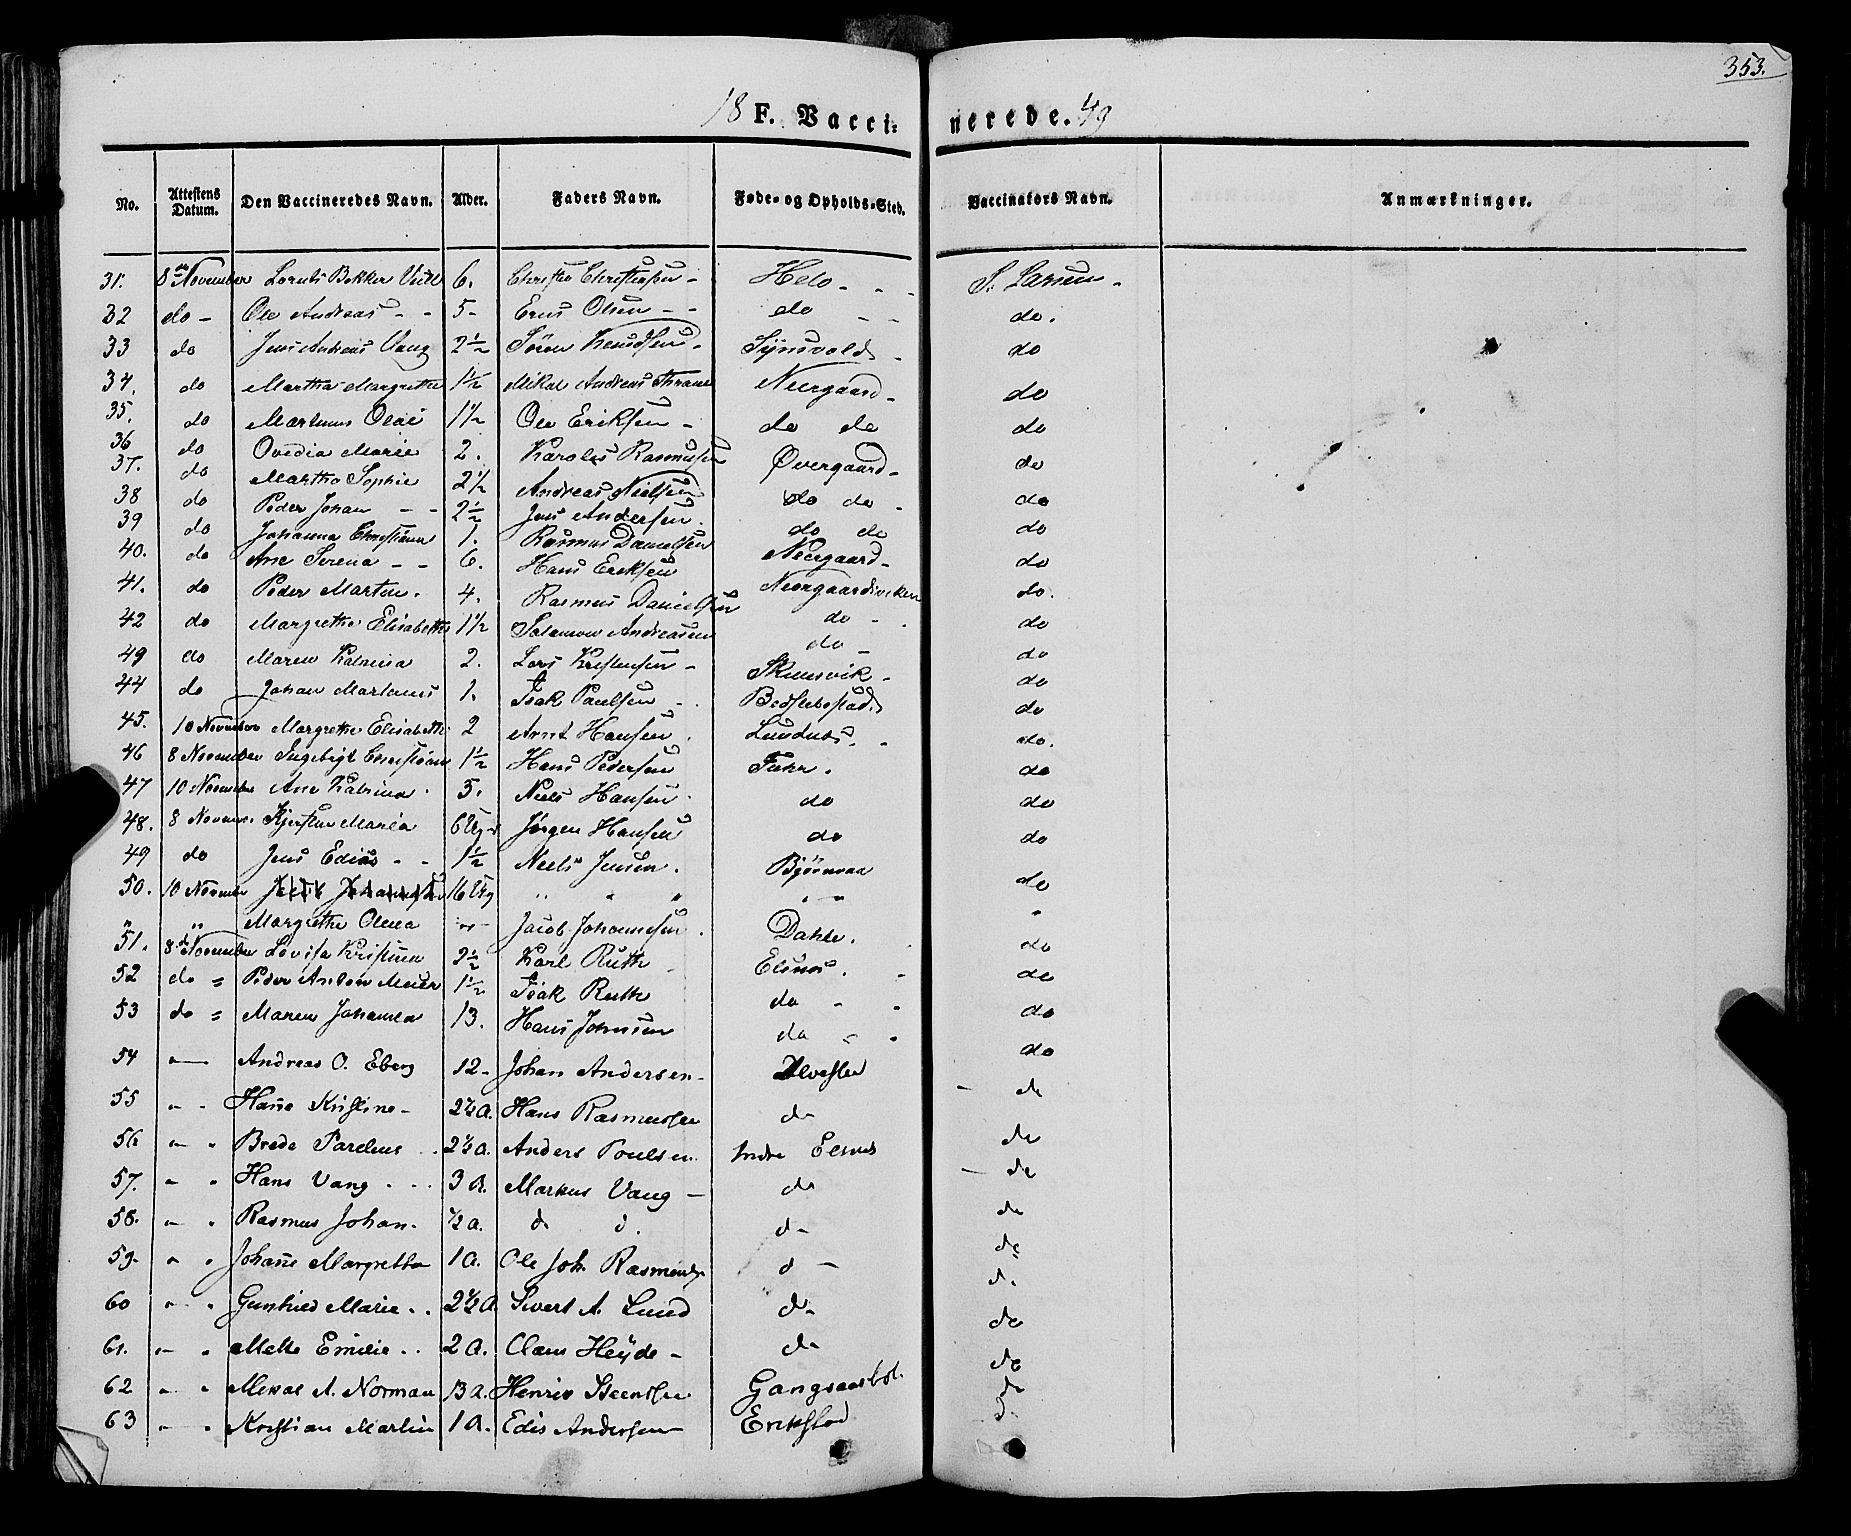 353.
18 F. Vaccinerede. 49
No. Attestens Datum. Den Vaccineredes Navn. Alder. Faders Navn. Føde- og Opholds-Sted. Vaccinators Navn. Anmærkninger.
31. 8de November 6. Helo - - - S. Larsen -
32 do - Ole Andreas - - 5 - Olsen - - do - - do.
33 do Jens Andreas Vang 2½ Søren Knudsen - do
34. do Martha Margrethe 1½ Mikal Andreas Neergaard - do
35. do 1½ Ole Eriksen - do do do
36 do Ovedia Marie 2. Rasmussen Øvergaard - do
37. do Martha Sophie 2½ Andreas Nielsen do do - do
38 do Peder Johan - - 2½ Jens Andersen. do do do
39 do Johanna Christiana 1. Rasmus Danielsen Neergaard - do
40. do Ane Serena - - 6. Hans Eriksen do.
41. do Peder Marten. 4. Rasmus Danielsen do - do
42 do Margrethe Elisabeth 1½ Salamon Andreasen do - do
49 do Maren Katrina 2. Lars Kristensen - do
44 do Johan Martinus 1. Isak Paulsen - do
45. 10 November Margrethe Elisabeth 2 Arnt Hansen. Lundnes. - do.
46 8 November Ingebigt Christiana 1½ Hans Pedersen do
47 10 November Ane Katrina. 5. Niels Hansen. do do
48. 8 November Maria 6 Ug Jørgen Hansen do do
49 do Jens Edias - - 1½ Niels Jensen. do
50. 10 November 16 Ug " " " " "
" " Margrethe Olena " Jacob Johannesen. Dahle. do
51. 8de November Lovisa Kristina 2½ Karl Ruth Elsnes. - do
52 do = Peder Anton Meier 1½ Isak Ruth do - - do
53 do = Maren Johanna 13. Hans Johnsen do - - do
54 " Andreas O. Eberg 12 - Johan Andersen - do
55 " - Hans Kristine - 2½ a. Hans Rasmussen do do
56 " " Brede Parelius - - 2½ a. Anders Poulsen Indre Elsnes do
57. " " Hans Vang - - - 3 a. Markus Vang - do do
58. " " Rasmus Johan - ½ a. d d. do do
59. " " Johane Margretha 1 a. Ole Joh. Rasmussen d - d.
60 " " Gunhild Marie - - 2½ a Sivert A. Lund do do
61. " " Mette Emilie - - 2 a. Claus Heÿde - do do
62 " " A. Norman 13 a. Henrik Steensen do
63 " " Kristian Martin 1 a. Edis Andersen Erikstad